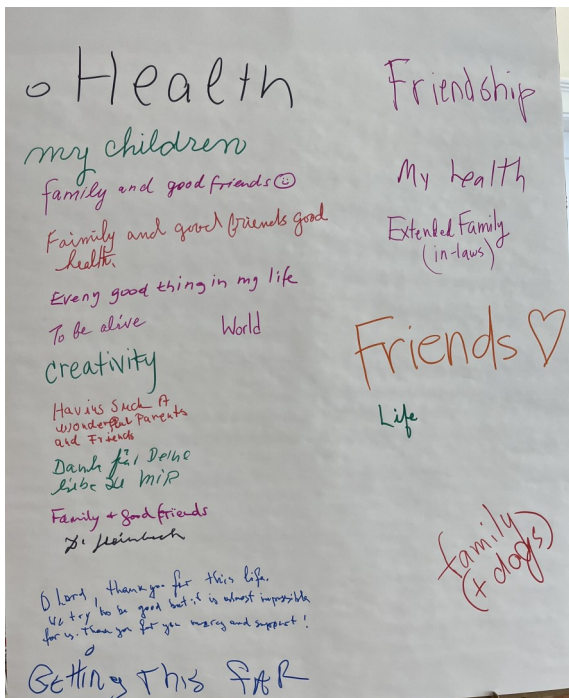 Health
my children
family and good friends☺
Faimily and good friends good
health.
Every good thing in my life
To be alive
World
creativity
Having Such A
wonderful Parents
and Friends
Dank für Deine
liebe zu mir
Family + good friends
O Lord, thank you for this life.
We try to be good but it is almost impossible
for us. Thank you for you mercy and support!
Getting This FAR
Friendship
My health
Extended Family
(in-laws)
Friends ♡
Life
family
(+ dogs)